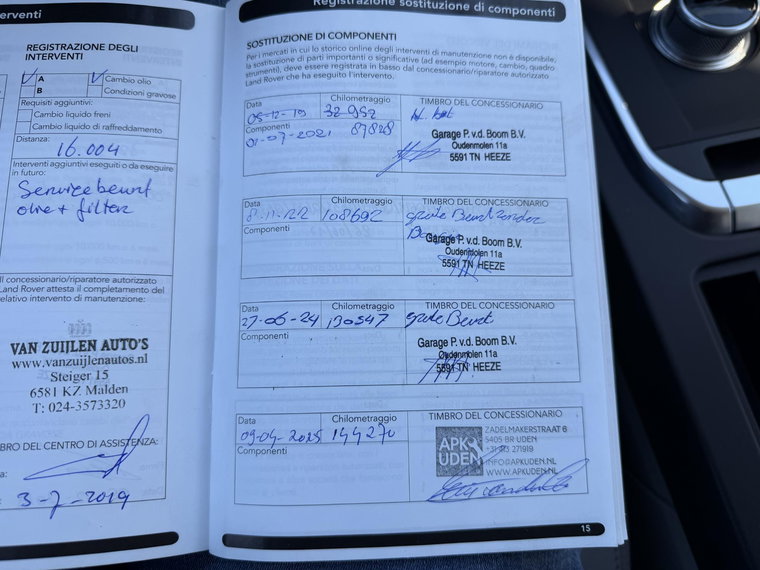 terventi
REGISTRAZIONE DEGLI
INTERVENTI
A
Cambio olio
B
Condizioni gravose
Requisiti aggiuntivi:
Cambio liquido freni
Cambio liquido di raffreddamento
Distanza:
16.004
Interventi aggiuntivi eseguiti o da eseguire
in futuro:
Servicebeurt
olie + filter
Il concessionario/riparatore autorizzato
Land Rover attesta il completamento del
relativo intervento di manutenzione:
VAN ZUIJLEN AUTO'S
www.vanzuijlenautos.nl
Steiger 15
6581 KZ Malden
T: 024-3573320
BRO DEL CENTRO DI ASSISTENZA:
3-7-2019
Registrazione sostituzione di componenti
SOSTITUZIONE DI COMPONENTI
Per i mercati in cui lo storico online degli interventi di manutenzione non è disponibile,
la sostituzione di parti importanti o significative (ad esempio motore, cambio, quadro
strumenti), deve essere registrata in basso dal concessionario/riparatore autorizzato
Land Rover che ha eseguito l'intervento.
Data
Chilometraggio
TIMBRO DEL CONCESSIONARIO
05-12-19
32952
Componenti
01-07-2021
87828
Garage P. v.d. Boom B.V.
Oudenmolen 11a
5591 TN HEEZE
Data
Chilometraggio
TIMBRO DEL CONCESSIONARIO
8-11-22
108692
grote Beurt zonder
Componenti
Garage P. v.d. Boom B.V.
Oudenmolen 11a
5591 TN HEEZE
Data
Chilometraggio
TIMBRO DEL CONCESSIONARIO
27-06-24
130547
grote Beurt
Componenti
Garage P. v.d. Boom B.V.
Oudenmolen 11a
5591 TN HEEZE
Data
Chilometraggio
TIMBRO DEL CONCESSIONARIO
09-04-2025
144270
Componenti
APK
UDEN
ZADELMAKERSTRAAT 6
5405 BR UDEN
+31 413 271919
INFO@APKUDEN.NL
WWW.APKUDEN.NL
15